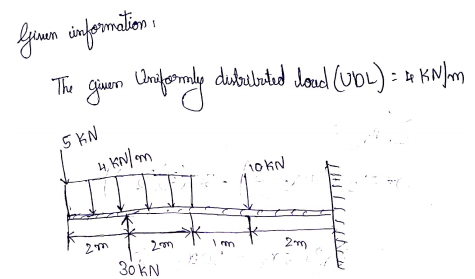 Given information:
The given Uniformly distributed load (UDL) = 4 KN/m
5 KN
4 KN/m
10 KN
2m
2m
1m
2m
30 KN